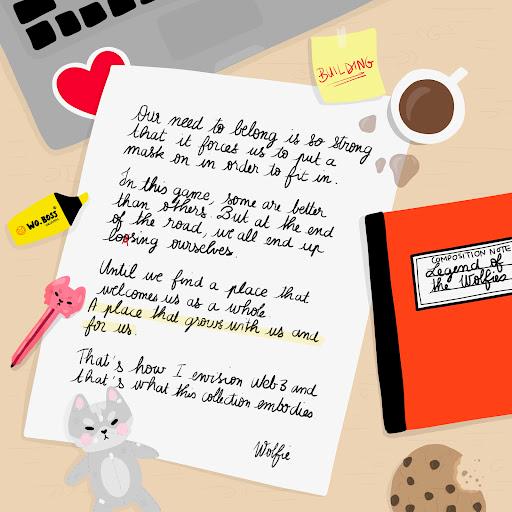 BUILDING
Our need to belong is so strong
that it forces us to put a
mask on in order to fit in.
In this game, some are better
than others. But at the end
of the road, we all end up
loosing ourselves.
Until we find a place that
welcomes us as a whole
A place that grows with us and
for us.
That's how I envision Web3 and
that's what this collection embodies
Wolfie
WO.BOSS
COMPOSITION NOTE
Legend of
the Wolfies